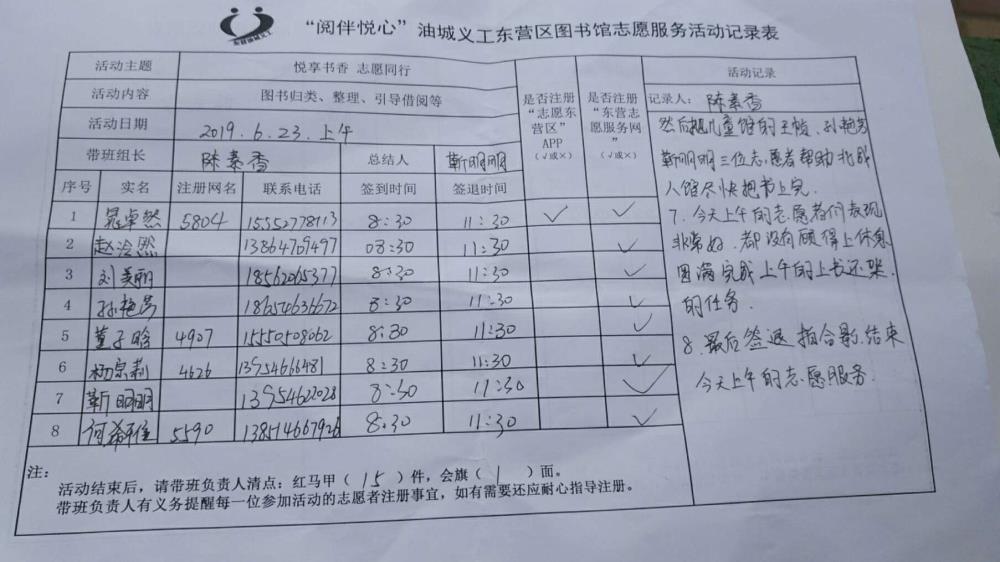 “阅伴悦心”油城义工东营区图书馆志愿服务活动记录表
活动主题 悦享书香 志愿同行
活动内容 图书归类、整理、引导借阅等
活动日期 2019.6.23.上午
带班组长 陈素香 总结人 靳明明
是否注册“志愿东营区”APP（√或×）
是否注册“东营志愿服务网”（√或×）
序号 实名 注册网名 联系电话 签到时间 签退时间
1 晁卓然 5804 15352778113 8:30 11:30 √ √
2 赵泠然 13864769497 08:30 11:30 √
3 刘美丽 18562065377 8:30 11:30 √
4 孙艳芳 18654636672 8:30 11:30 √
5 董子晗 4907 15550508062 8:30 11:30 √
6 杨宗莉 4626 13954666481 8:30 11:30 √
7 靳明明 13954622028 8:30 11:30 √
8 5590 13854666792 8:30 11:30 √
活动记录
记录人：陈素香
然后把儿童馆的王 孙艳芳
靳明明三位志愿者帮助北成
人馆尽快把书上完.
7. 今天上午的志愿者们表现
非常好.都没有顾得上休息
圆满完成上午的上书还架.
的任务.
8.最后签退拍合影.结束
今天上午的志愿服务.
注：
活动结束后，请带班负责人清点：红马甲（15）件，会旗（1）面。
带班负责人有义务提醒每一位参加活动的志愿者注册事宜，如有需要还应耐心指导注册。